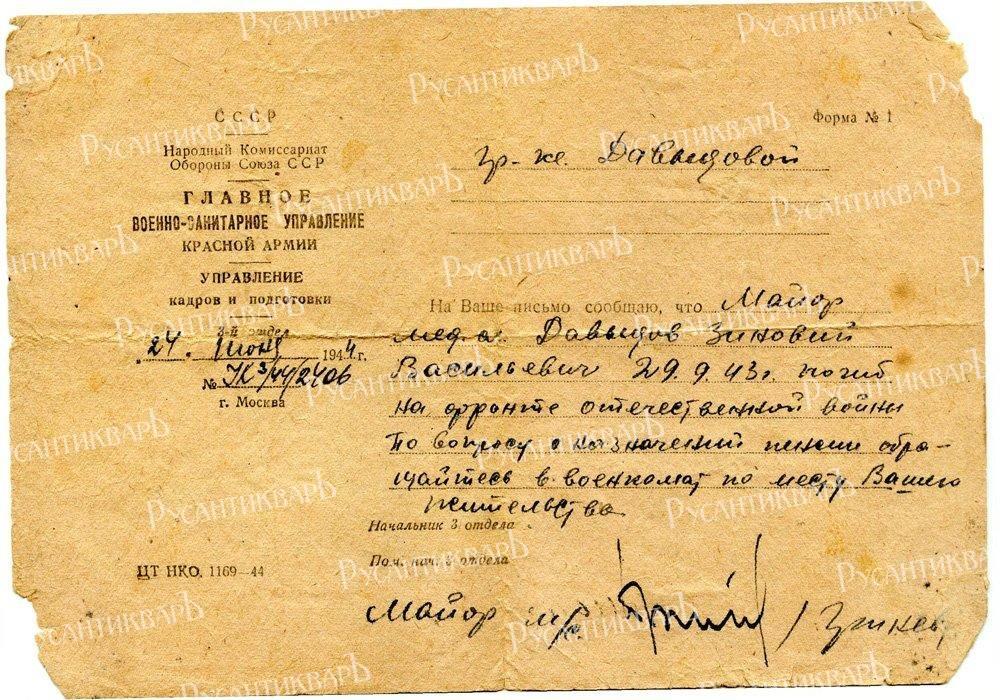 СССР
Форма № 1
Народный Комиссариат
Обороны Союза ССР
ГЛАВНОЕ
ВОЕННО-САНИТАРНОЕ УПРАВЛЕНИЕ
КРАСНОЙ АРМИИ
УПРАВЛЕНИЕ
кадров и подготовки
3-й отдел
"24" июня 1944 г.
№ УК3/44/2406
г. Москва
гр-ке. Давыдовой
На Ваше письмо сообщаю, что Майор
мед. сл. Давыдов Зиновий
Васильевич 29.9.43г. погиб
на фронте отечественной войны
По вопросу о назначении пенсии обра-
щайтесь в военкомат по месту Вашего
жительства
Начальник 3 отдела
Пом. нач. 3 отдела
ЦТ НКО. 1169—44
Майор м/с
РусантикварЪ